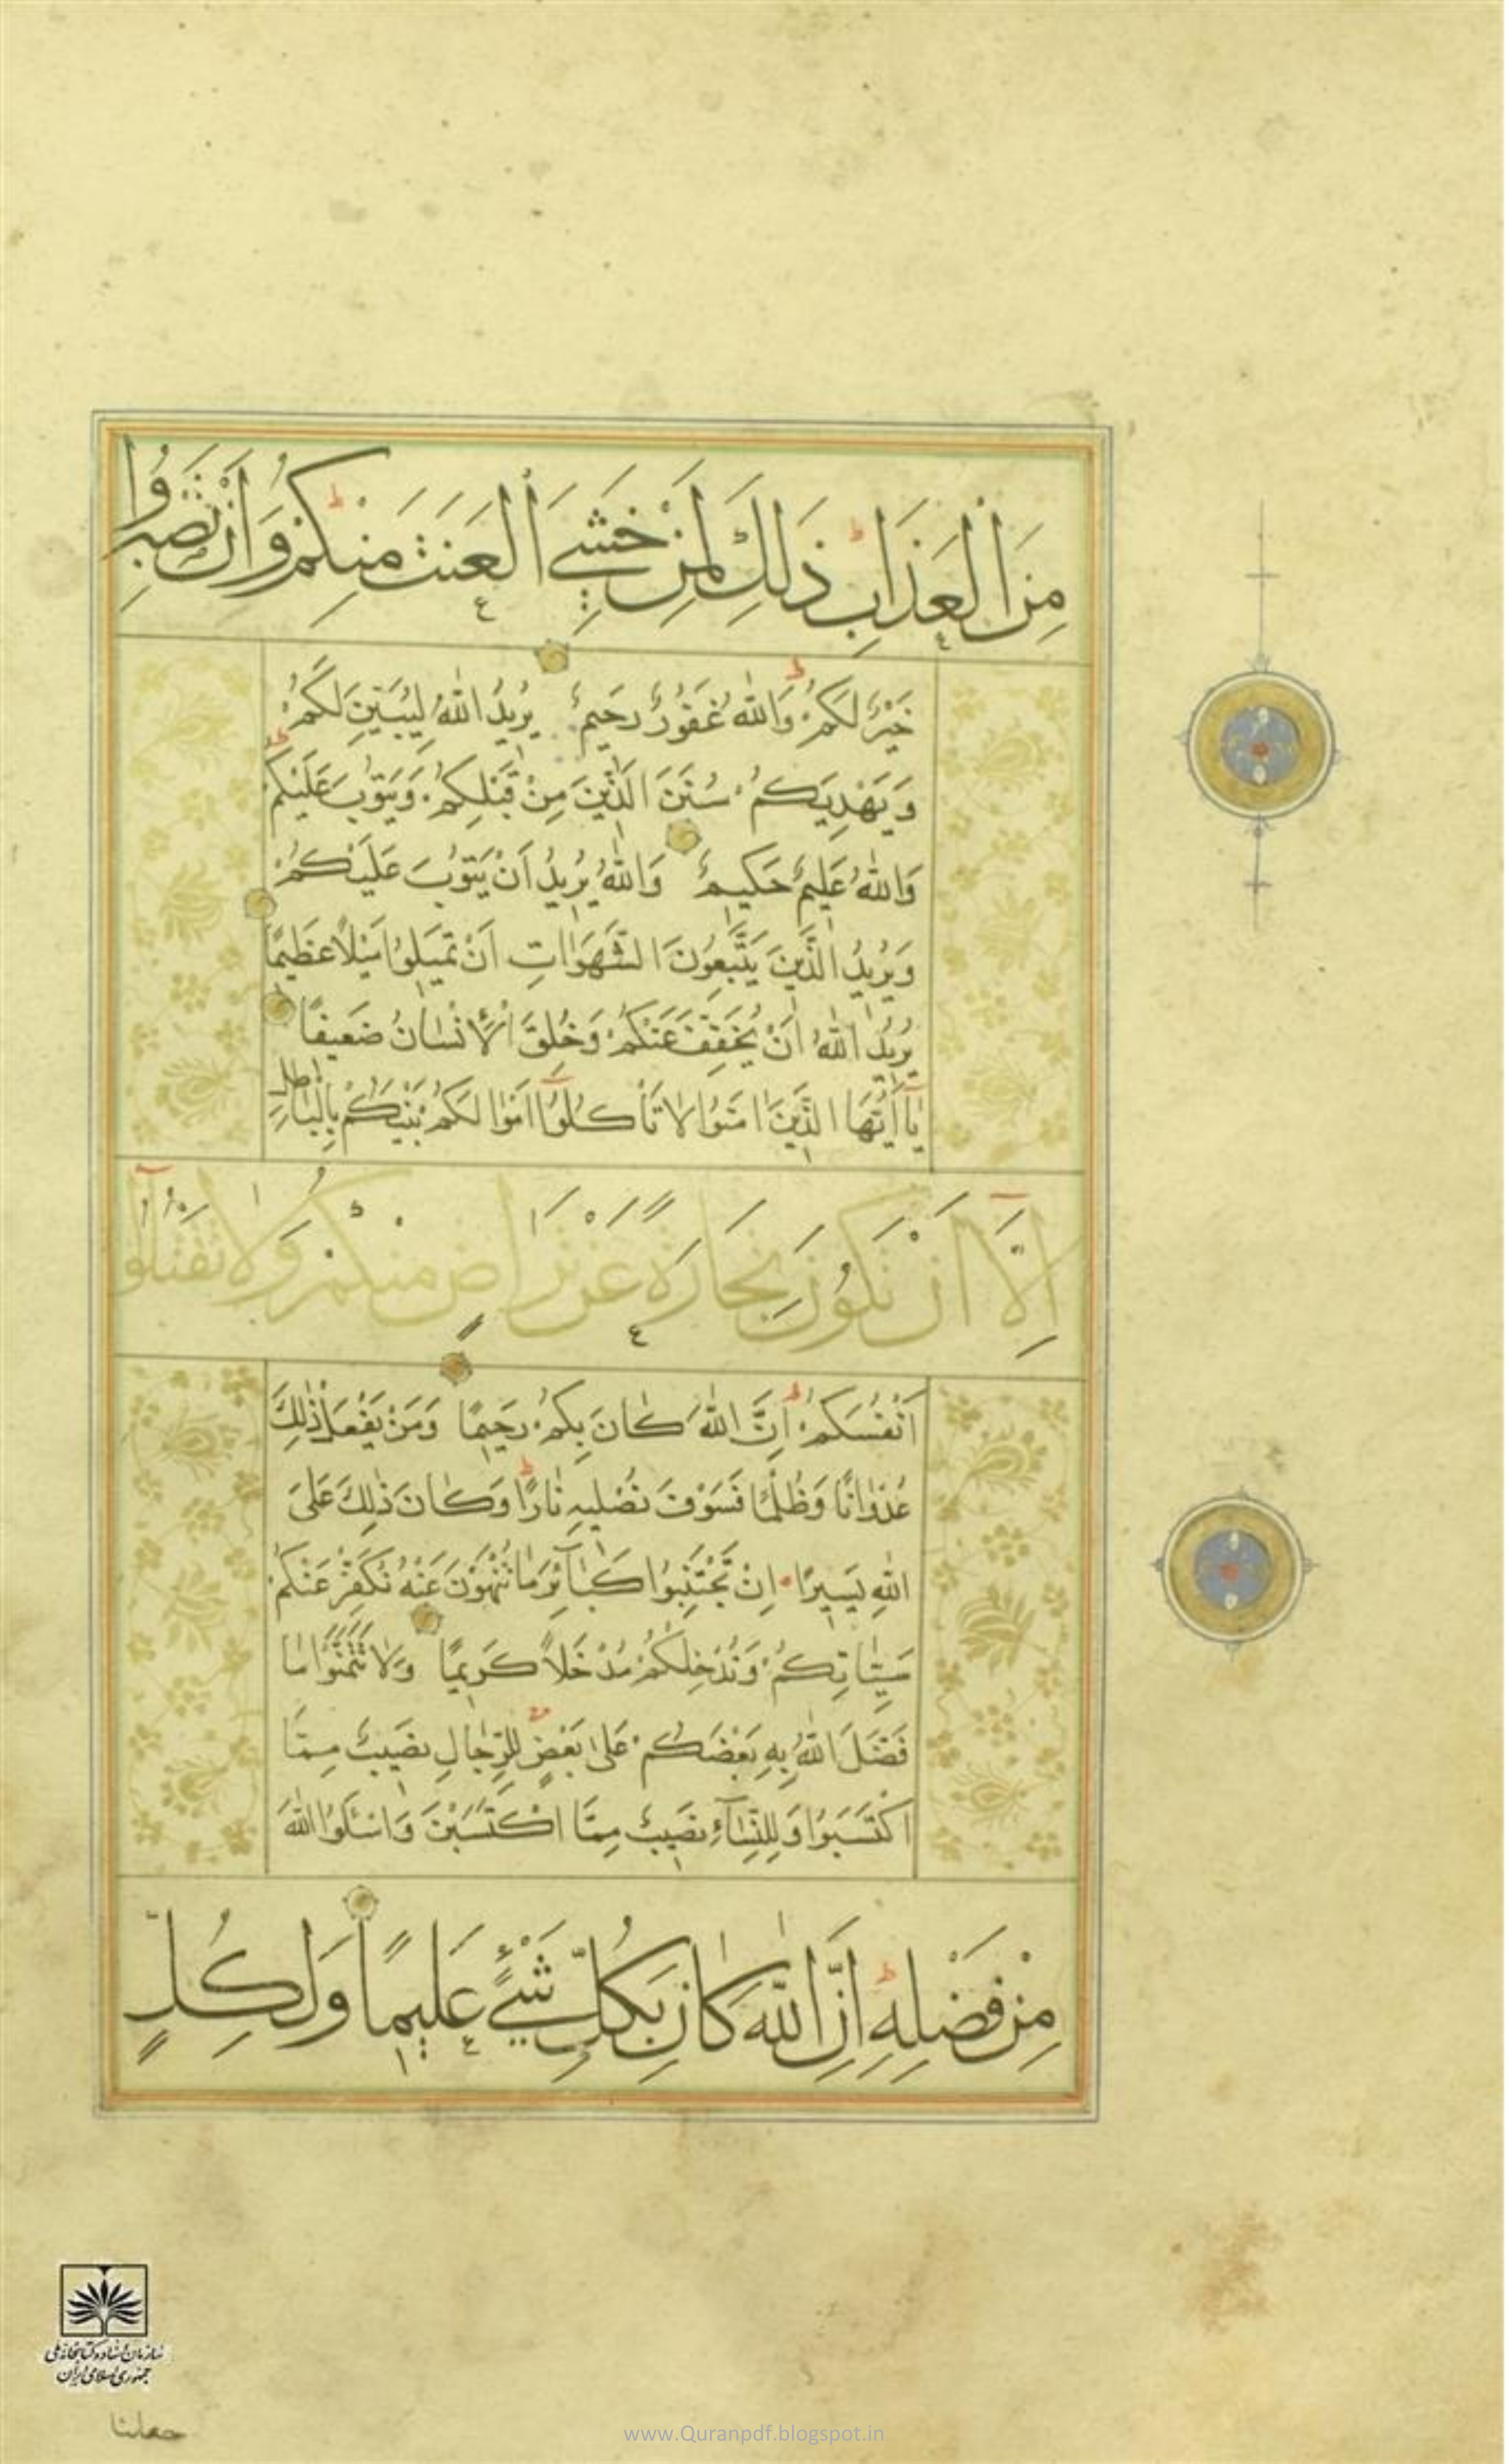 مِنَ الْعَذَابِ ذَلِكَ لِمَنْ خَشِيَ الْعَنَتَ مِنْكُمْ وَاَنْ تَصْبِرُوا
خَيْرٌ لَكُمْ وَاللّٰهُ غَفُورٌ رَحِيمٌ يُرِيدُ اللّٰهُ لِيُبَيِّنَ لَكُمْ
وَيَهْدِيَكُمْ سُنَنَ الَّذِينَ مِنْ قَبْلِكُمْ وَيَتُوبَ عَلَيْكُمْ
وَاللّٰهُ عَلِيمٌ حَكِيمٌ وَاللّٰهُ يُرِيدُ اَنْ يَتُوبَ عَلَيْكُمْ
وَيُرِيدُ الَّذِينَ يَتَّبِعُونَ الشَّهَوٰاتِ اَنْ تَمِيلُوا مَيْلًا عَظِيمًا
يُرِيدُ اللّٰهُ اَنْ يُخَفِّفَ عَنْكُمْ وَخُلِقَ الْاِنْسٰانُ ضَعِيفًا
يٰٓا اَيُّهَا الَّذِينَ اٰمَنُوا لَا تَأْكُلُوٓا اَمْوٰالَكُمْ بَيْنَكُمْ بِالْبٰاطِلِ
اِلَّآ اَنْ تَكُونَ تِجَارَةً عَنْ تَرَاضٍ مِنْكُمْ وَلَا تَقْتُلُوٓا
اَنْفُسَكُمْ اِنَّ اللّٰهَ كٰانَ بِكُمْ رَحِيمًا وَمَنْ يَفْعَلْ ذٰلِكَ
عُدْوٰانًا وَظُلْمًا فَسَوْفَ نُصْلِيهِ نٰارًا وَكٰانَ ذٰلِكَ عَلَى
اللّٰهِ يَسِيرًا اِنْ تَجْتَنِبُوا كَبٰٓائِرَ مٰا تُنْهَوْنَ عَنْهُ نُكَفِّرْ عَنْكُمْ
سَيِّئٰاتِكُمْ وَنُدْخِلْكُمْ مُدْخَلًا كَرِيمًا وَلَا تَتَمَنَّوْا مٰا
فَضَّلَ اللّٰهُ بِهِ بَعْضَكُمْ عَلٰى بَعْضٍ لِلرِّجٰالِ نَصِيبٌ مِمَّا
اكْتَسَبُوا وَلِلنِّسٰٓاءِ نَصِيبٌ مِمَّا اكْتَسَبْنَ وَاسْئَلُوا اللّٰهَ
مِنْ فَضْلِهِ اِنَّ اللّٰهَ كٰانَ بِكُلِّ شَيْءٍ عَلِيمًا وَلِكُلٍّ
سازمان اسناد و کتابخانه ملی
جمهوری اسلامی ایران
جعلنا
www.Quranpdf.blogspot.in